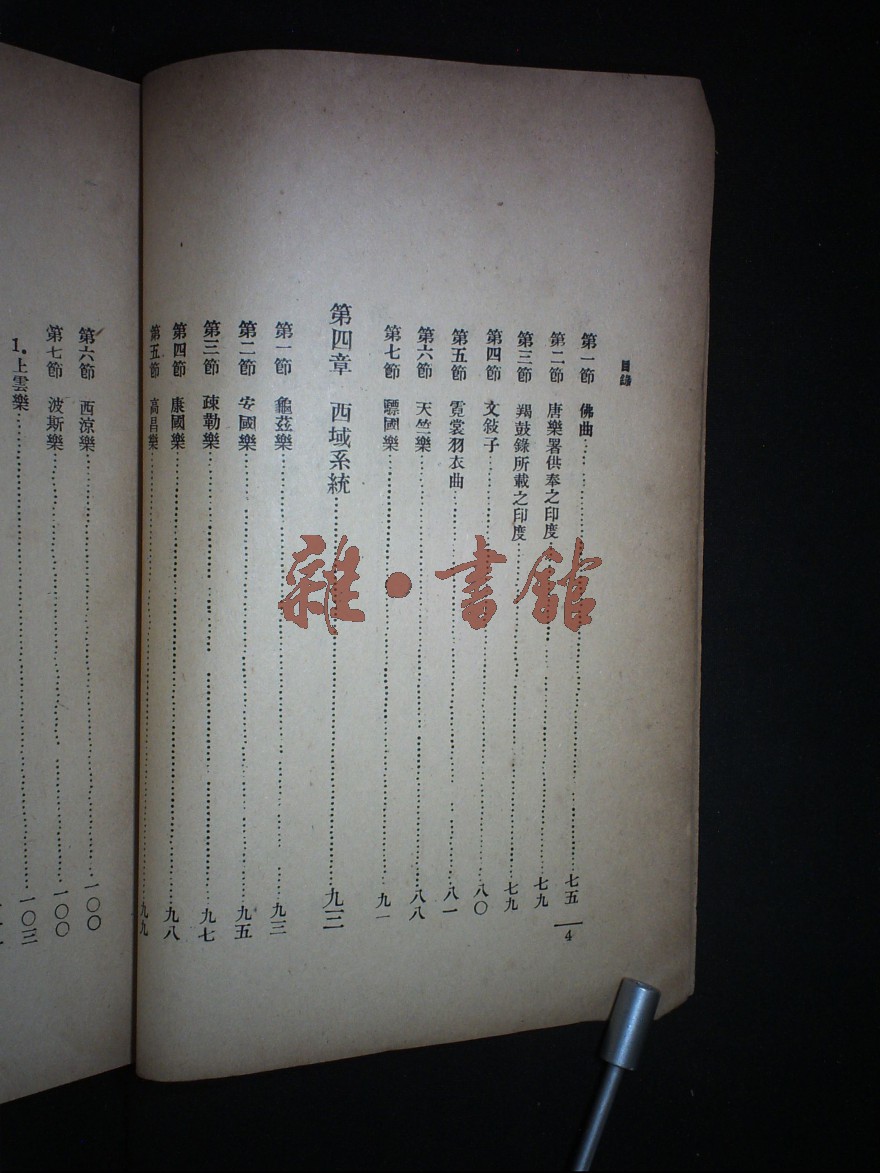 目錄
第一節 佛曲……七五
第二節 唐樂署供奉之印度樂……七九
第三節 羯鼓錄所載之印度……七九
第四節 文敍子……八〇
第五節 霓裳羽衣曲……八一
第六節 天竺樂……八八
第七節 驃國樂……九一
第四章 西域系統……九三
第一節 龜茲樂……九三
第二節 安國樂……九五
第三節 疎勒樂……九七
第四節 康國樂……九八
第五節 高昌樂……九九
4
第六節 西涼樂……一〇〇
第七節 波斯樂……一〇〇
1.上雲樂……一〇三
雜·書館